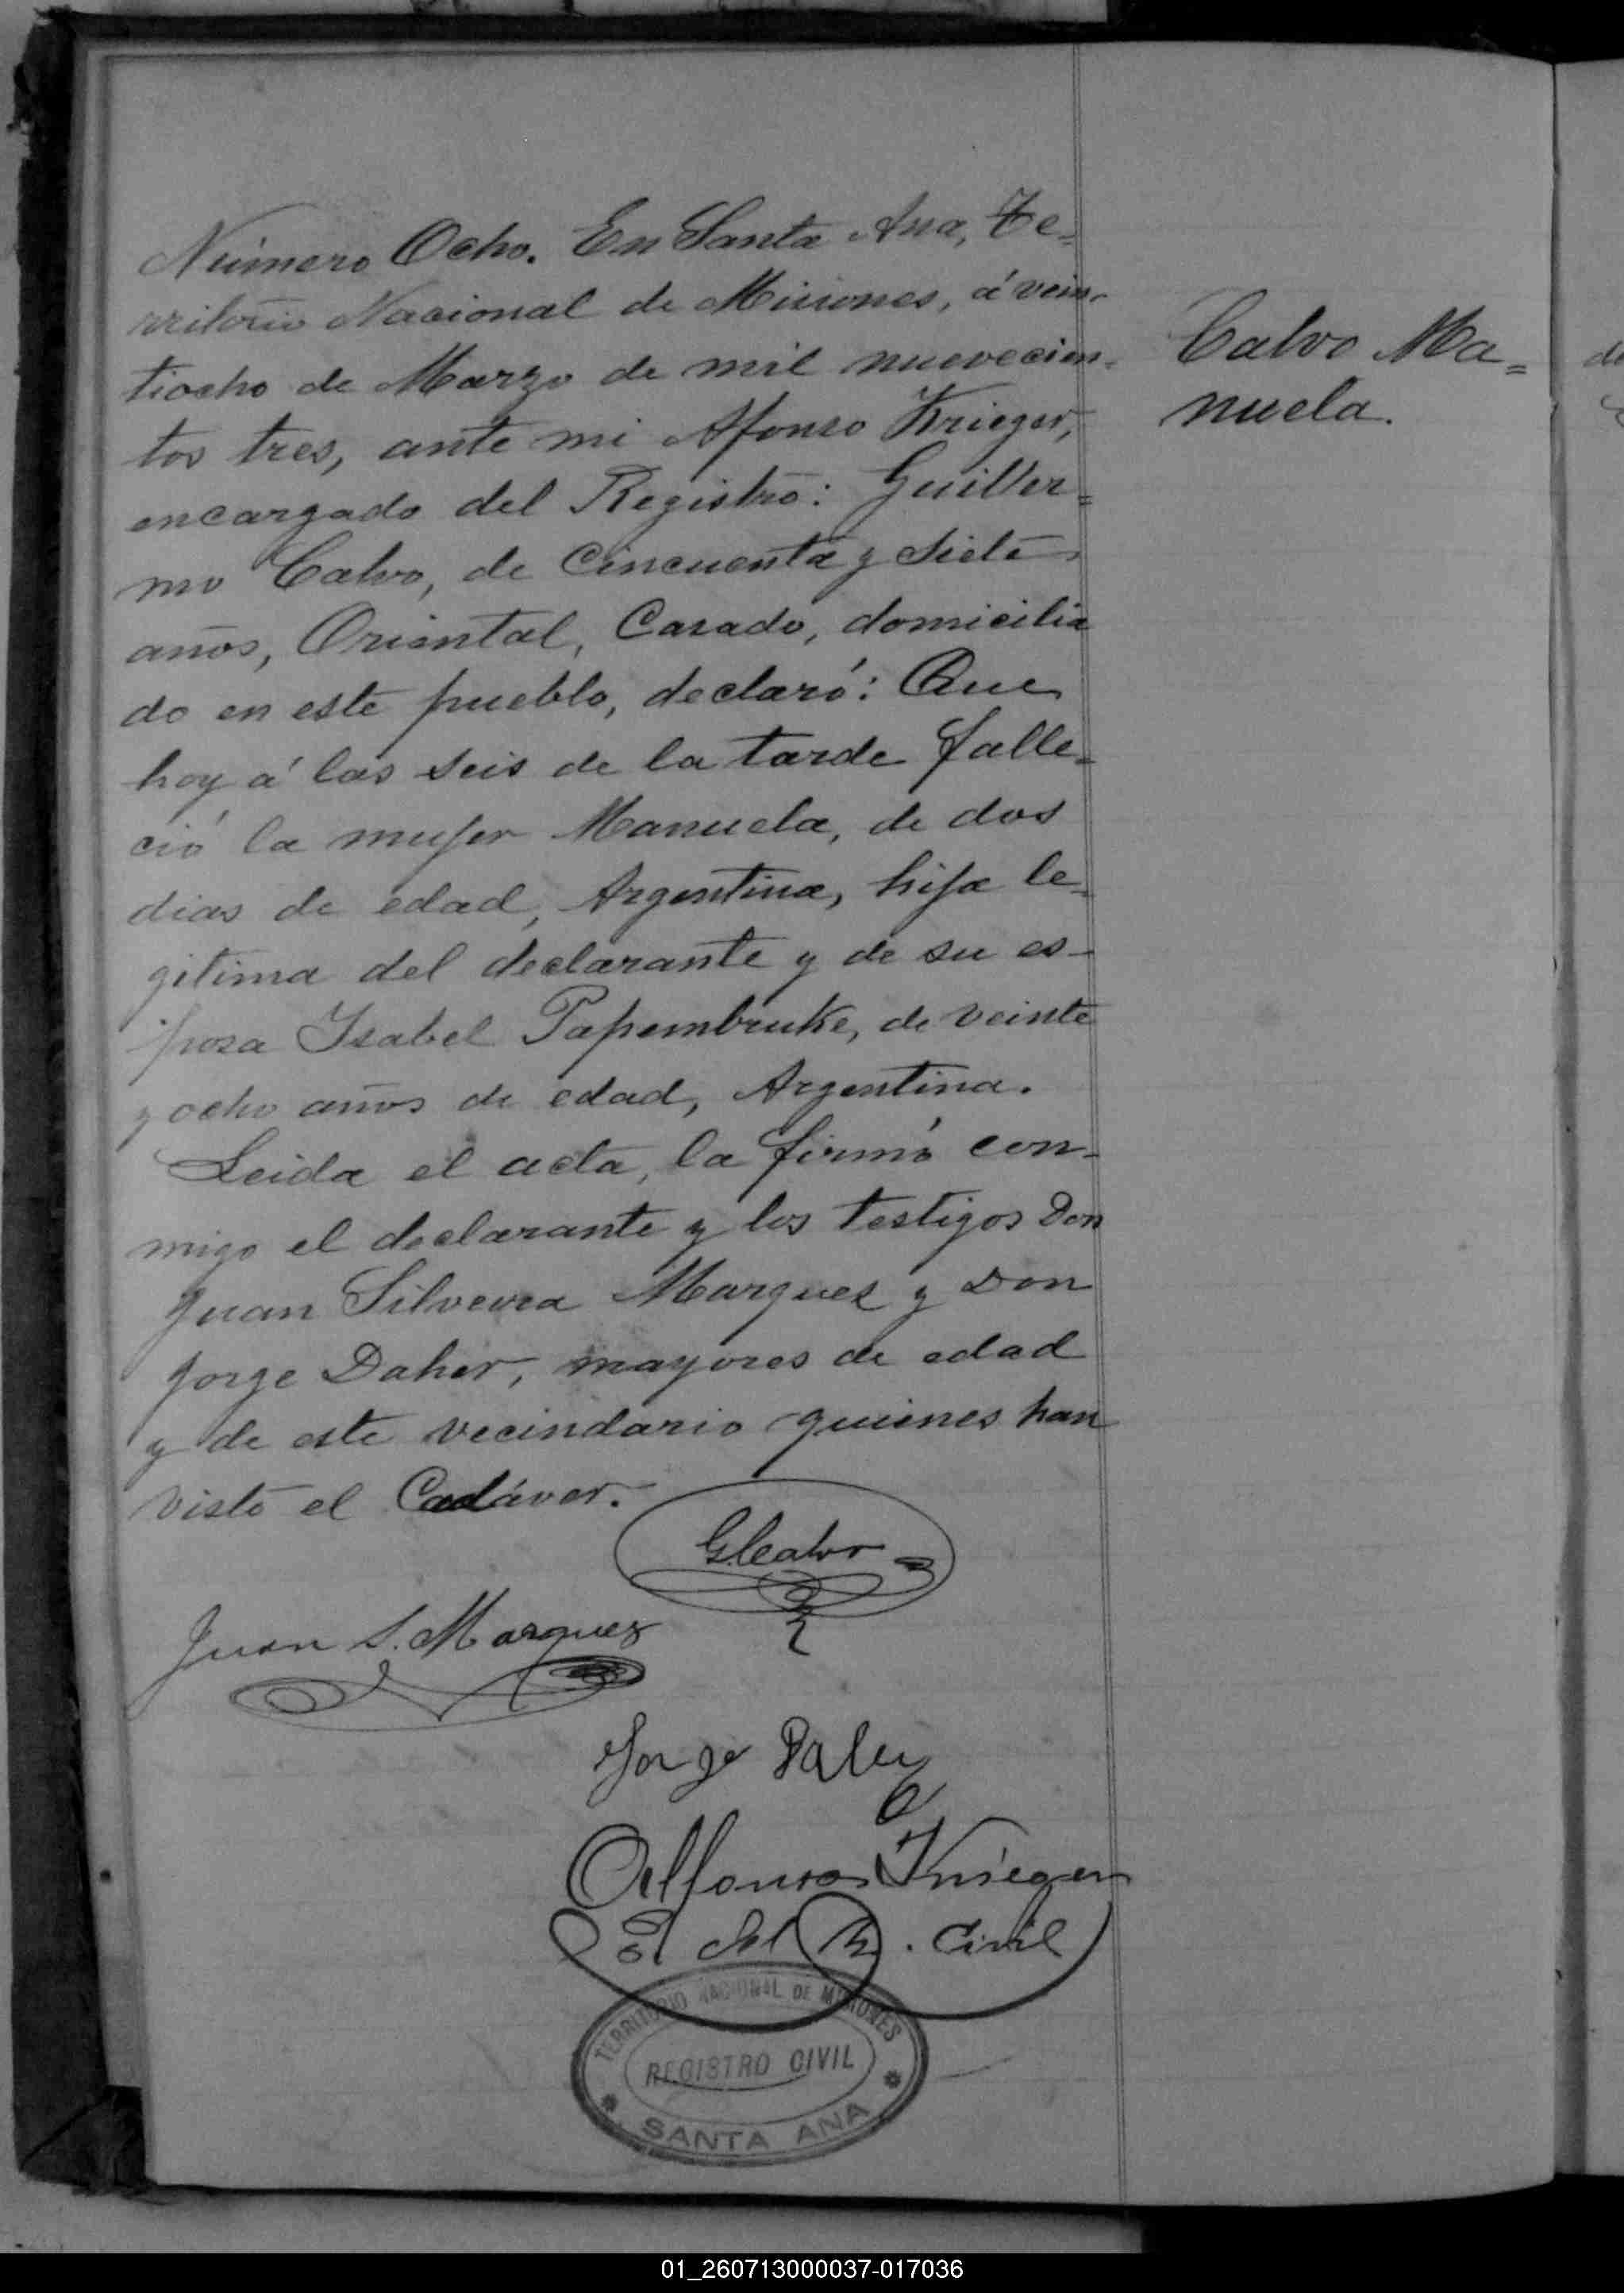 Número Ocho. En Santa Ana, Te=
rritorio Nacional de Misiones, á vein-
tiocho de Marzo de mil nuevecien-
tos tres, ante mi Alfonso Krieger,
encargado del Registro: Guiller=
mo Calvo, de Cincuenta y Siete
años, Oriental, Casado, domicilia
do en este pueblo, declaró: Que
hoy á las seis de la tarde falle-
ció la mujer Manuela, de dos
dias de edad, Argentina, hija le-
gitima del declarante y de su es-
posa Isabel Papembruke, de veinte
y ocho años de edad, Argentina.
Leida el acta, la firmó con-
migo el declarante y los testigos Don
Juan Silveira Marquez y Don
Jorge Daher, mayores de edad
y de este vecindario quienes han
visto el Cadáver.
Calvo Ma=
nuela.
G. Calvo
Juan S. Marquez
Jorge
Alfonso Krieger
E. del R. Civil
TERRITORIO NACIONAL DE MISIONES
REGISTRO CIVIL
SANTA ANA
01_260713000037-017036